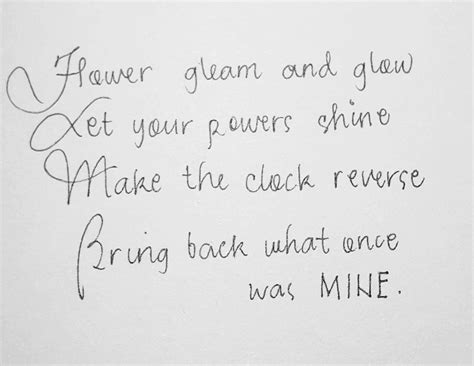 Flower gleam and glow
Let your powers shine
Make the clock reverse
Bring back what once
was MINE.